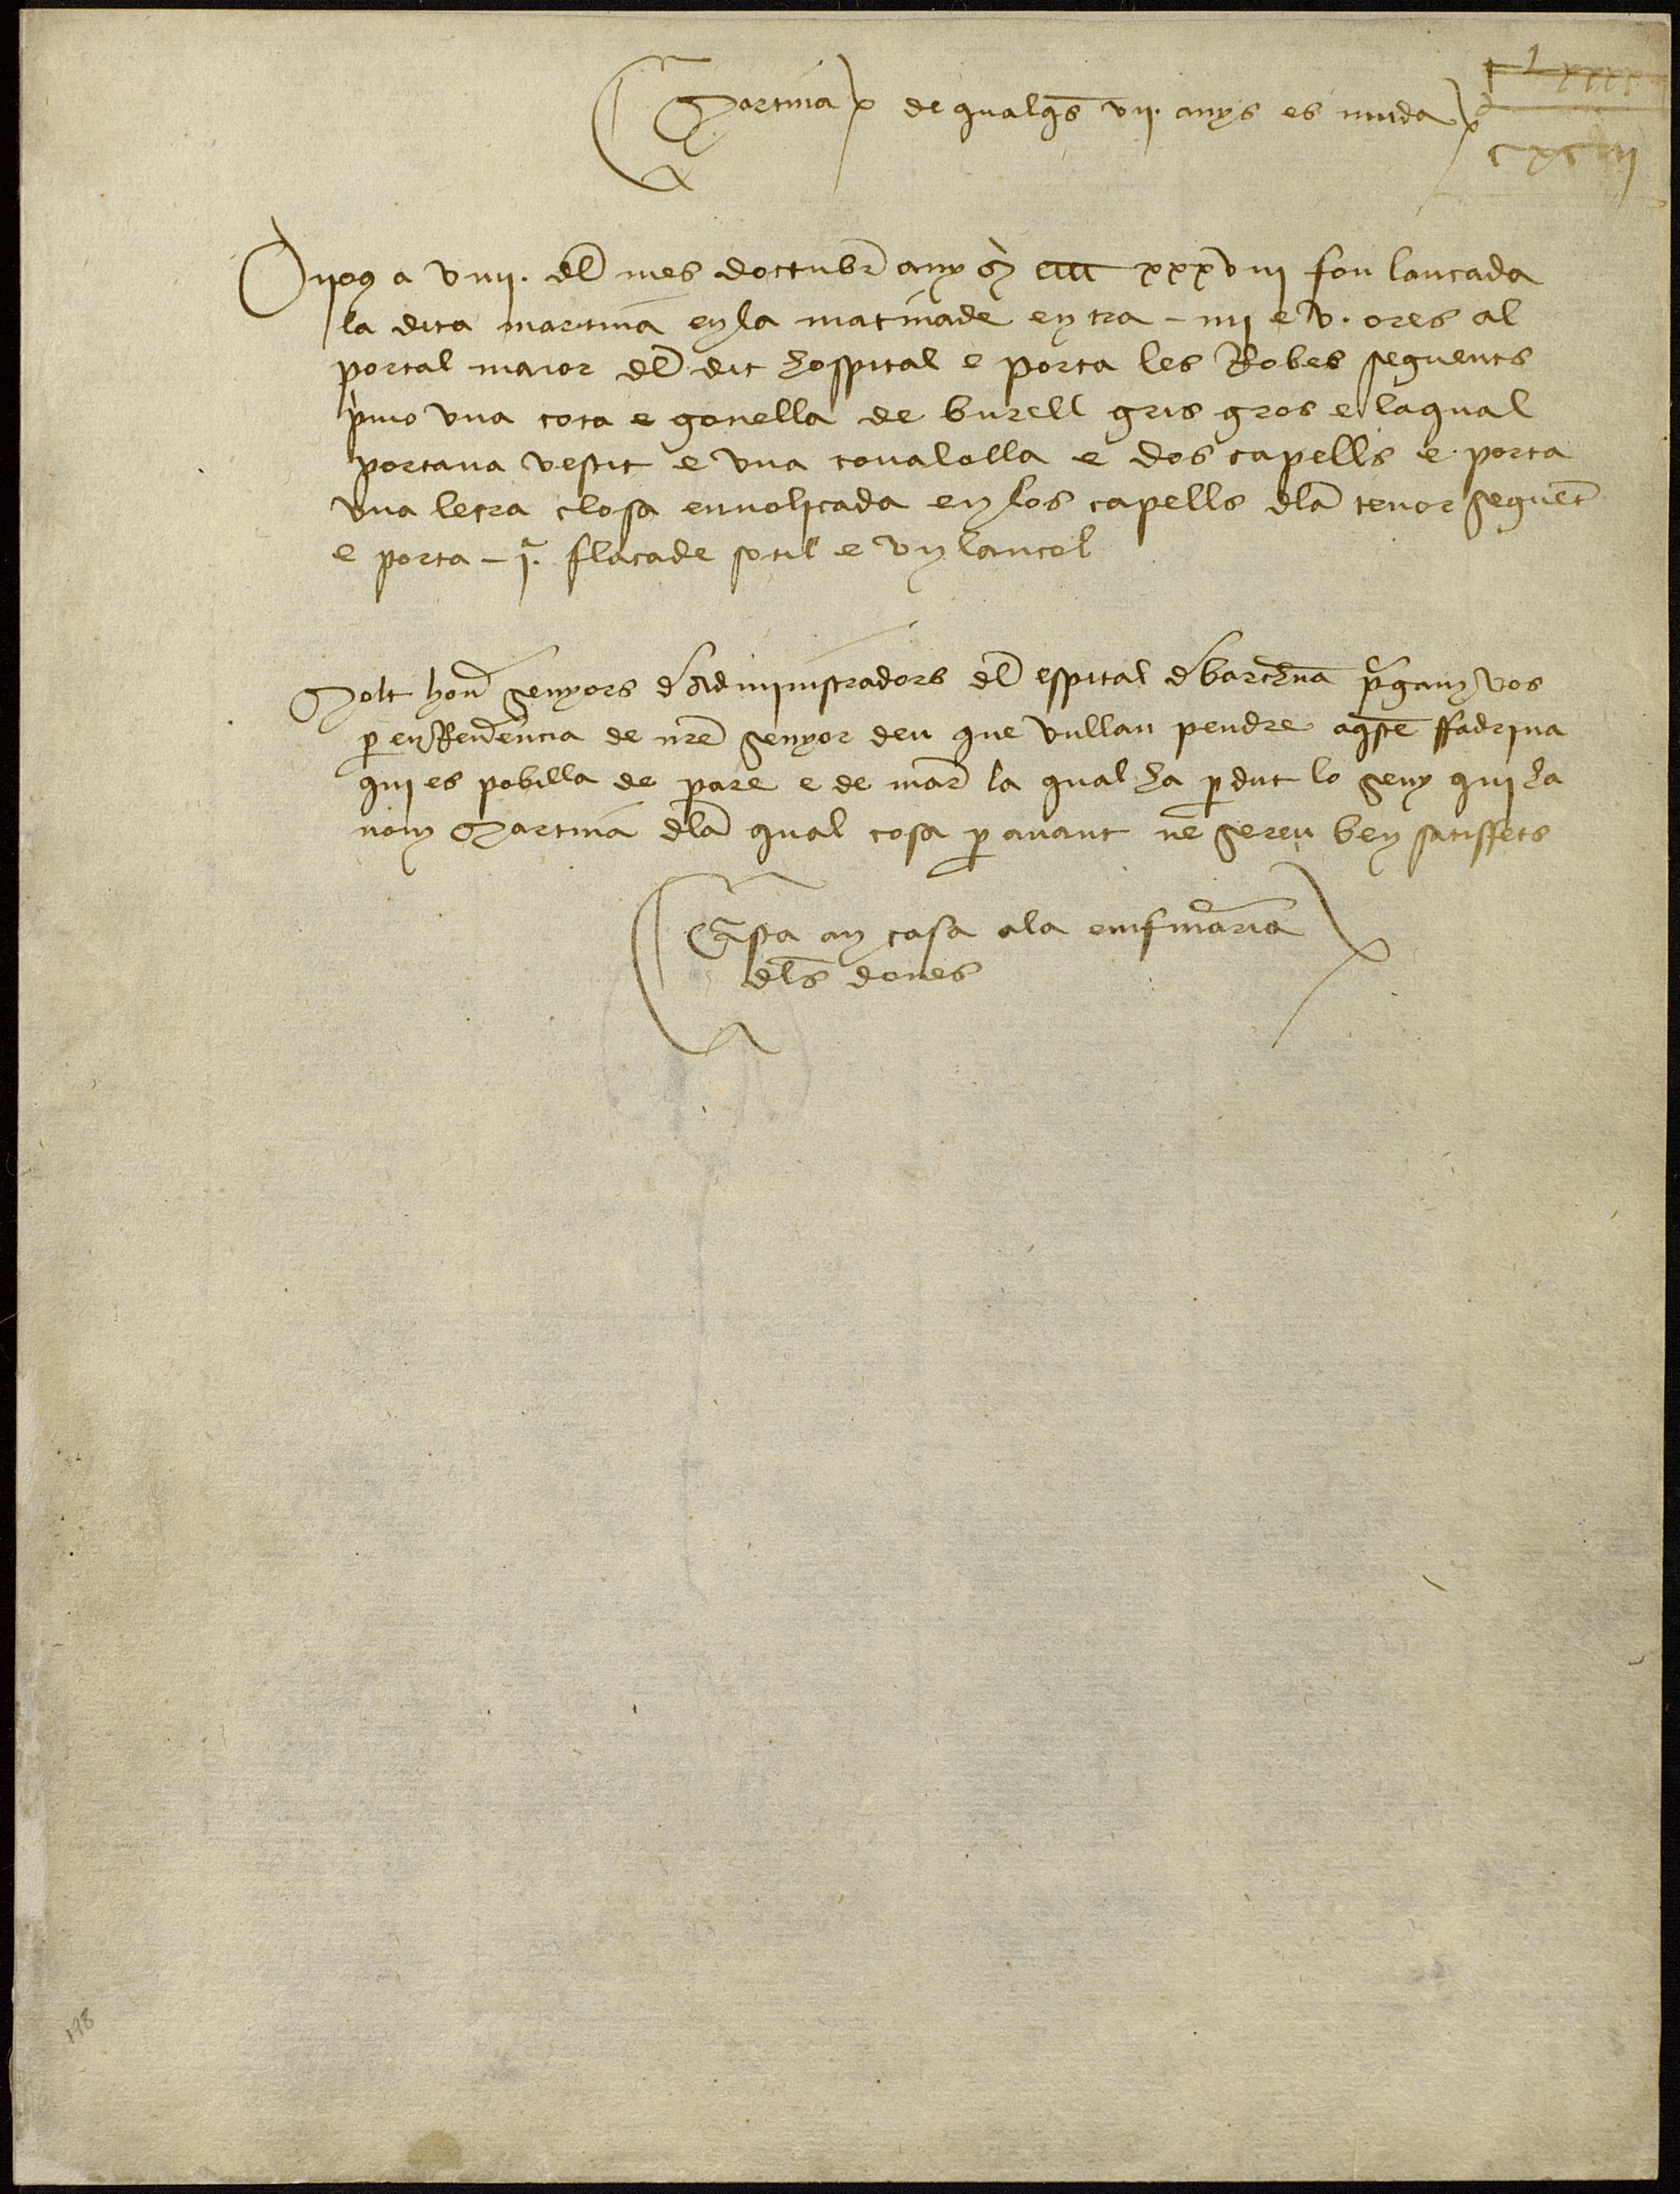 Martina de qualqs vii. anys es muda
cxciii
Dijos a viiii. del mes doctubr any M cccc xxxviii fou lançada
la dita martina en la matinade entra - iiii e v. ores al
portal maior del dit hospital e porta les Robes seguents
pmo una cota e gonella de burell gris gros e laqual
portaua vestit e una toualolla e dos capells e porta
una letra closa enuolicada en los capells dla tenor seguent
e porta - jª. flaçade sotil e un lançol
Molt honr senyors d administradors del espital d barchna pregam vos
per en Reuerencia de nre senyor deu que vullau pendre aqste ffadrina
qui es pobilla de pare e de mar la qual ha perdut lo seny qui ha
nom Martina dla qual cosa per auant ne sereu ben satisffets
Esta an casa ala emfmaria
dls dones
198